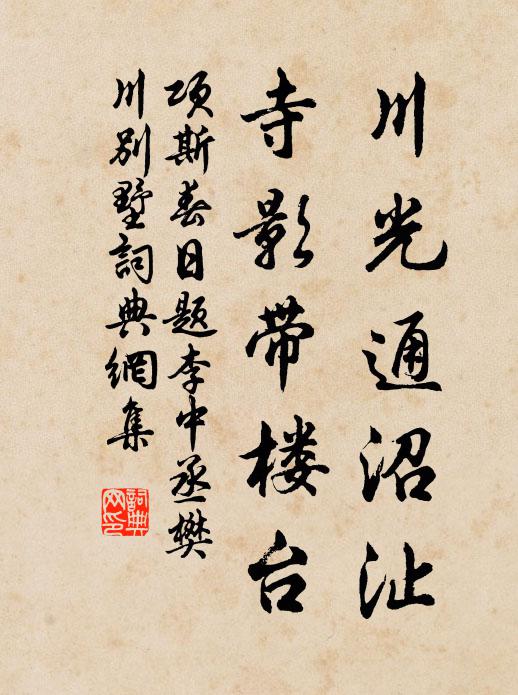 川光通沼沚
寺影带楼台
项斯春日题李中丞樊
川别墅詞典網集
詞典網印